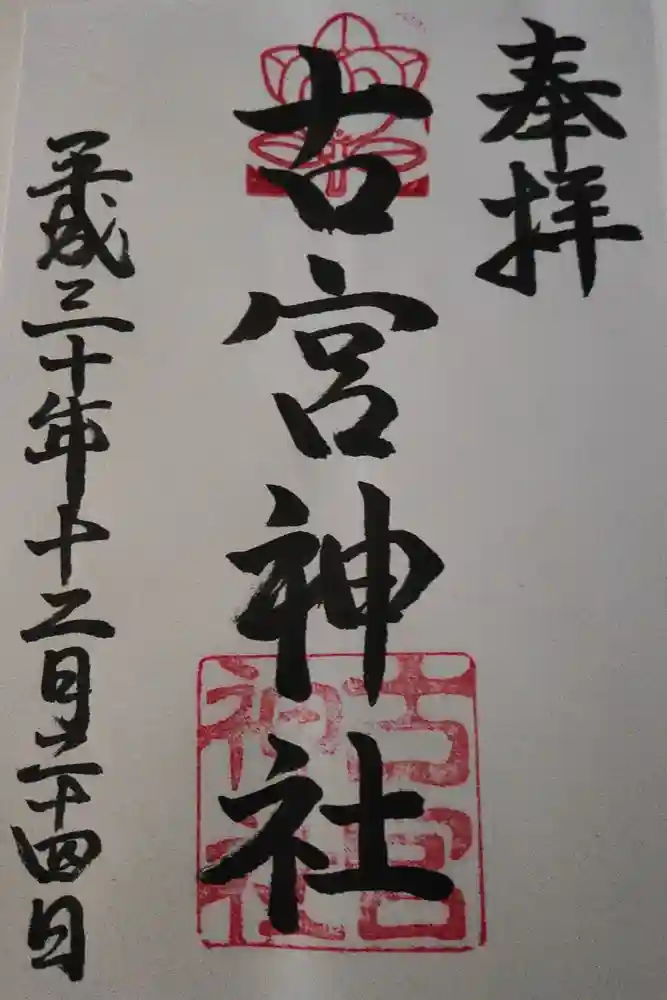 奉拝
古宮神社
古宮
神社
平成三十年十二月二十四日